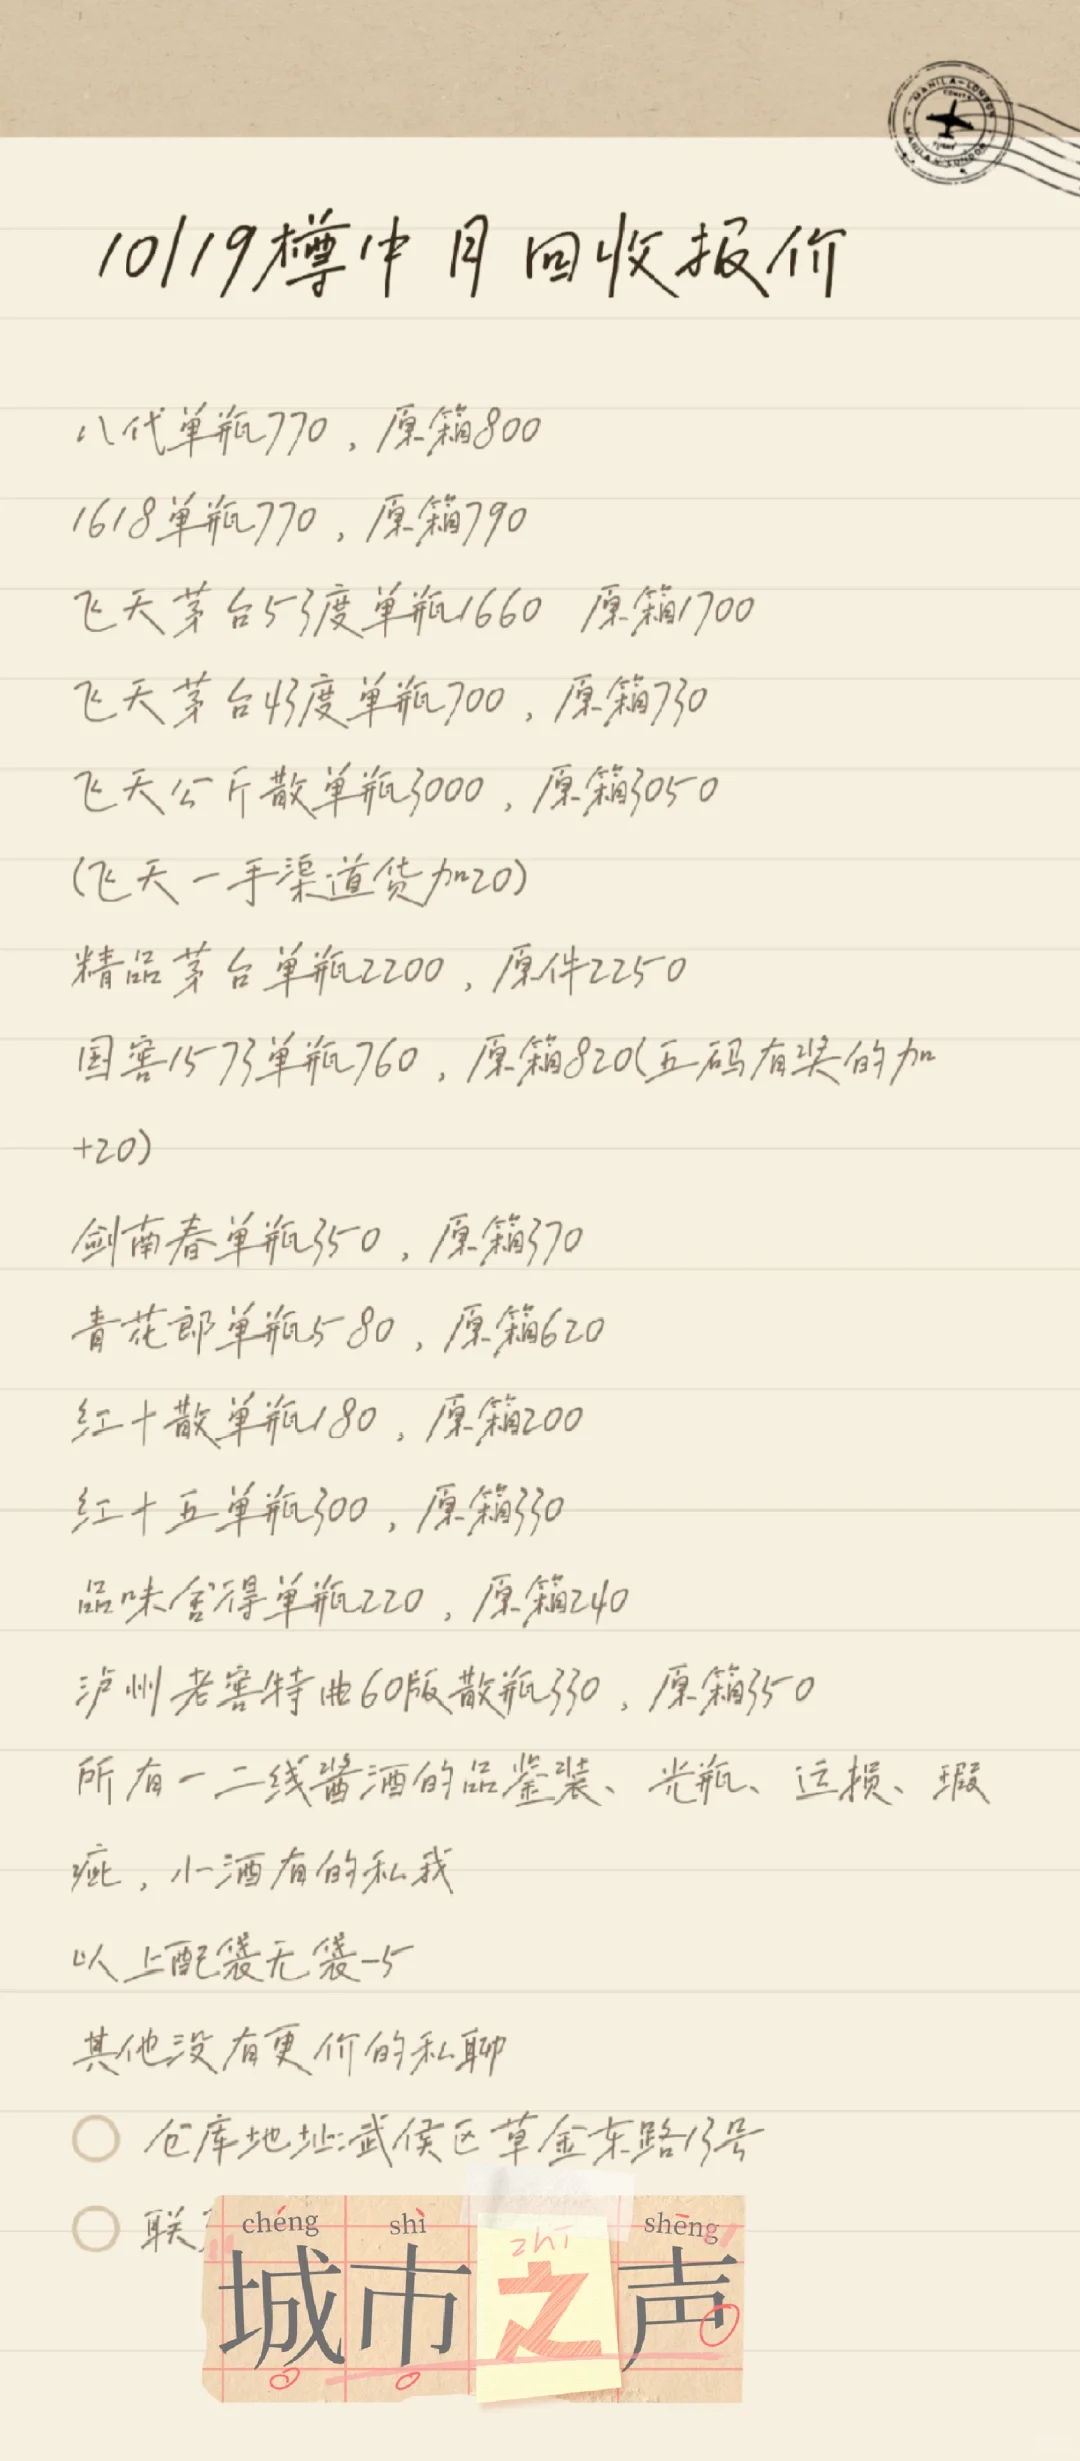 MANILA-LONDON
MANILA-LONDON
10/19樽中月回收报价
八代单瓶770，原箱800
1618单瓶770，原箱790
飞天茅台53度单瓶1660 原箱1700
飞天茅台43度单瓶700，原箱730
飞天公斤散单瓶3000，原箱3050
(飞天一手渠道货加20)
精品茅台单瓶2200，原件2250
国窖1573单瓶760，原箱820(五码有奖的加
+20)
剑南春单瓶350，原箱370
青花郎单瓶580，原箱620
红十散单瓶180，原箱200
红十五单瓶300，原箱330
品味舍得单瓶220，原箱240
泸州老窖特曲60版散瓶330，原箱350
所有一二线酱酒的品鉴装、光瓶、运损、瑕
疵，小酒有的私我
以上配袋无袋-5
其他没有更价的私聊
仓库地址:武侯区草金东路13号
联
chéng shì zhī shēng
城市之声